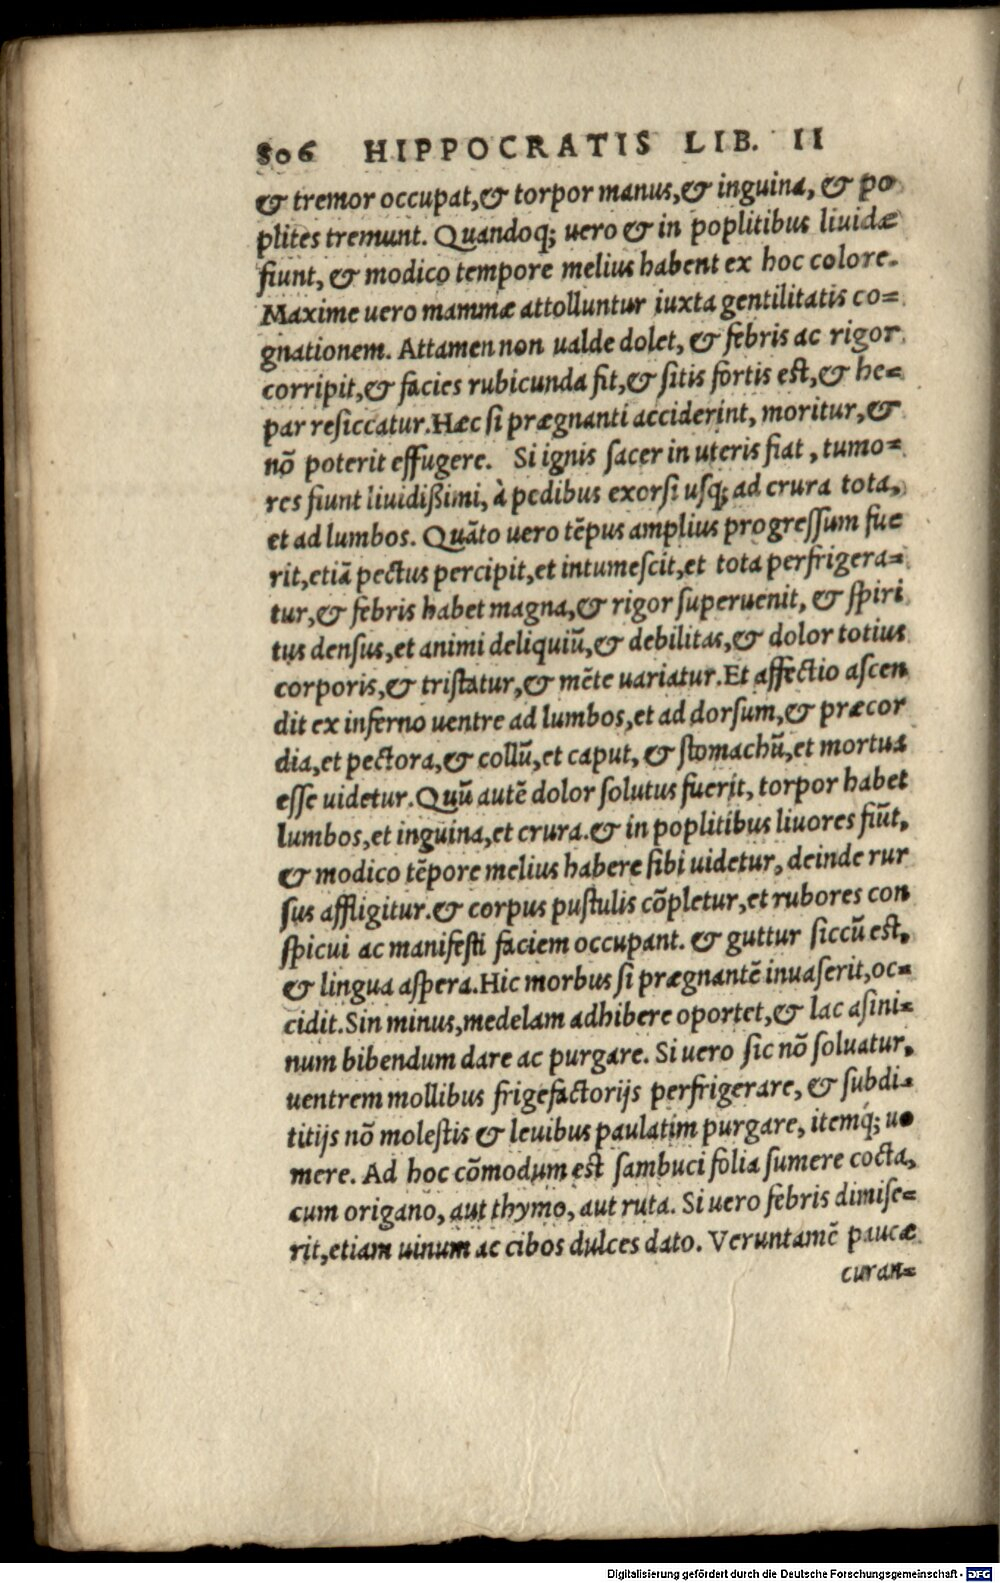 806 HIPPOCRATIS LIB. II
& tremor occupat,& torpor manus,& inguina, & po
plites tremunt. Quandoq; uero & in poplitibus liuidæ
fiunt, & modico tempore melius habent ex hoc colore.
Maxime uero mammæ attolluntur iuxta gentilitatis co=
gnationem. Attamen non ualde dolet, & febris ac rigor
corripit,& facies rubicunda fit,& sitis fortis est,& he=
par resiccatur.Hæc si prægnanti acciderint, moritur,&
nõ poterit effugere. Si ignis sacer in uteris fiat, tumo=
res fiunt liuidißimi, à pedibus exorsi usq; ad crura tota,
et ad lumbos. Quãto uero tẽpus amplius progressum fue
rit,etiã pectus percipit,et intumescit,et tota perfrigera=
tur,& febris habet magna,& rigor superuenit, & spiri
tus densus,et animi deliquiũ,& debilitas,& dolor totius
corporis,& tristatur,& mẽte uariatur.Et affectio ascen
dit ex inferno uentre ad lumbos,et ad dorsum,& præcor
dia,et pectora,& collũ,et caput, & stomachũ,et mortua
esse uidetur.Quũ autẽ dolor solutus fuerit, torpor habet
lumbos,et inguina,et crura.& in poplitibus liuores fiũt,
& modico tẽpore melius habere sibi uidetur, deinde rur
sus affligitur.& corpus pustulis cõpletur,et rubores con
spicui ac manifesti faciem occupant. & guttur siccũ est,
& lingua aspera.Hic morbus si prægnantẽ inuaserit,oc=
cidit.Sin minus,medelam adhibere oportet,& lac asini=
num bibendum dare ac purgare. Si uero sic nõ soluatur,
uentrem mollibus frigefactorijs perfrigerare, & subdi=
titijs nõ molestis & leuibus paulatim purgare, itemq́; uo
mere. Ad hoc cõmodum est sambuci folia sumere cocta,
cum origano, aut thymo, aut ruta. Si uero febris dimise=
rit,etiam uinum ac cibos dulces dato. Veruntamẽ paucæ
curan=
Digitalisierung gefördert durch die Deutsche Forschungsgemeinschaft - DFG